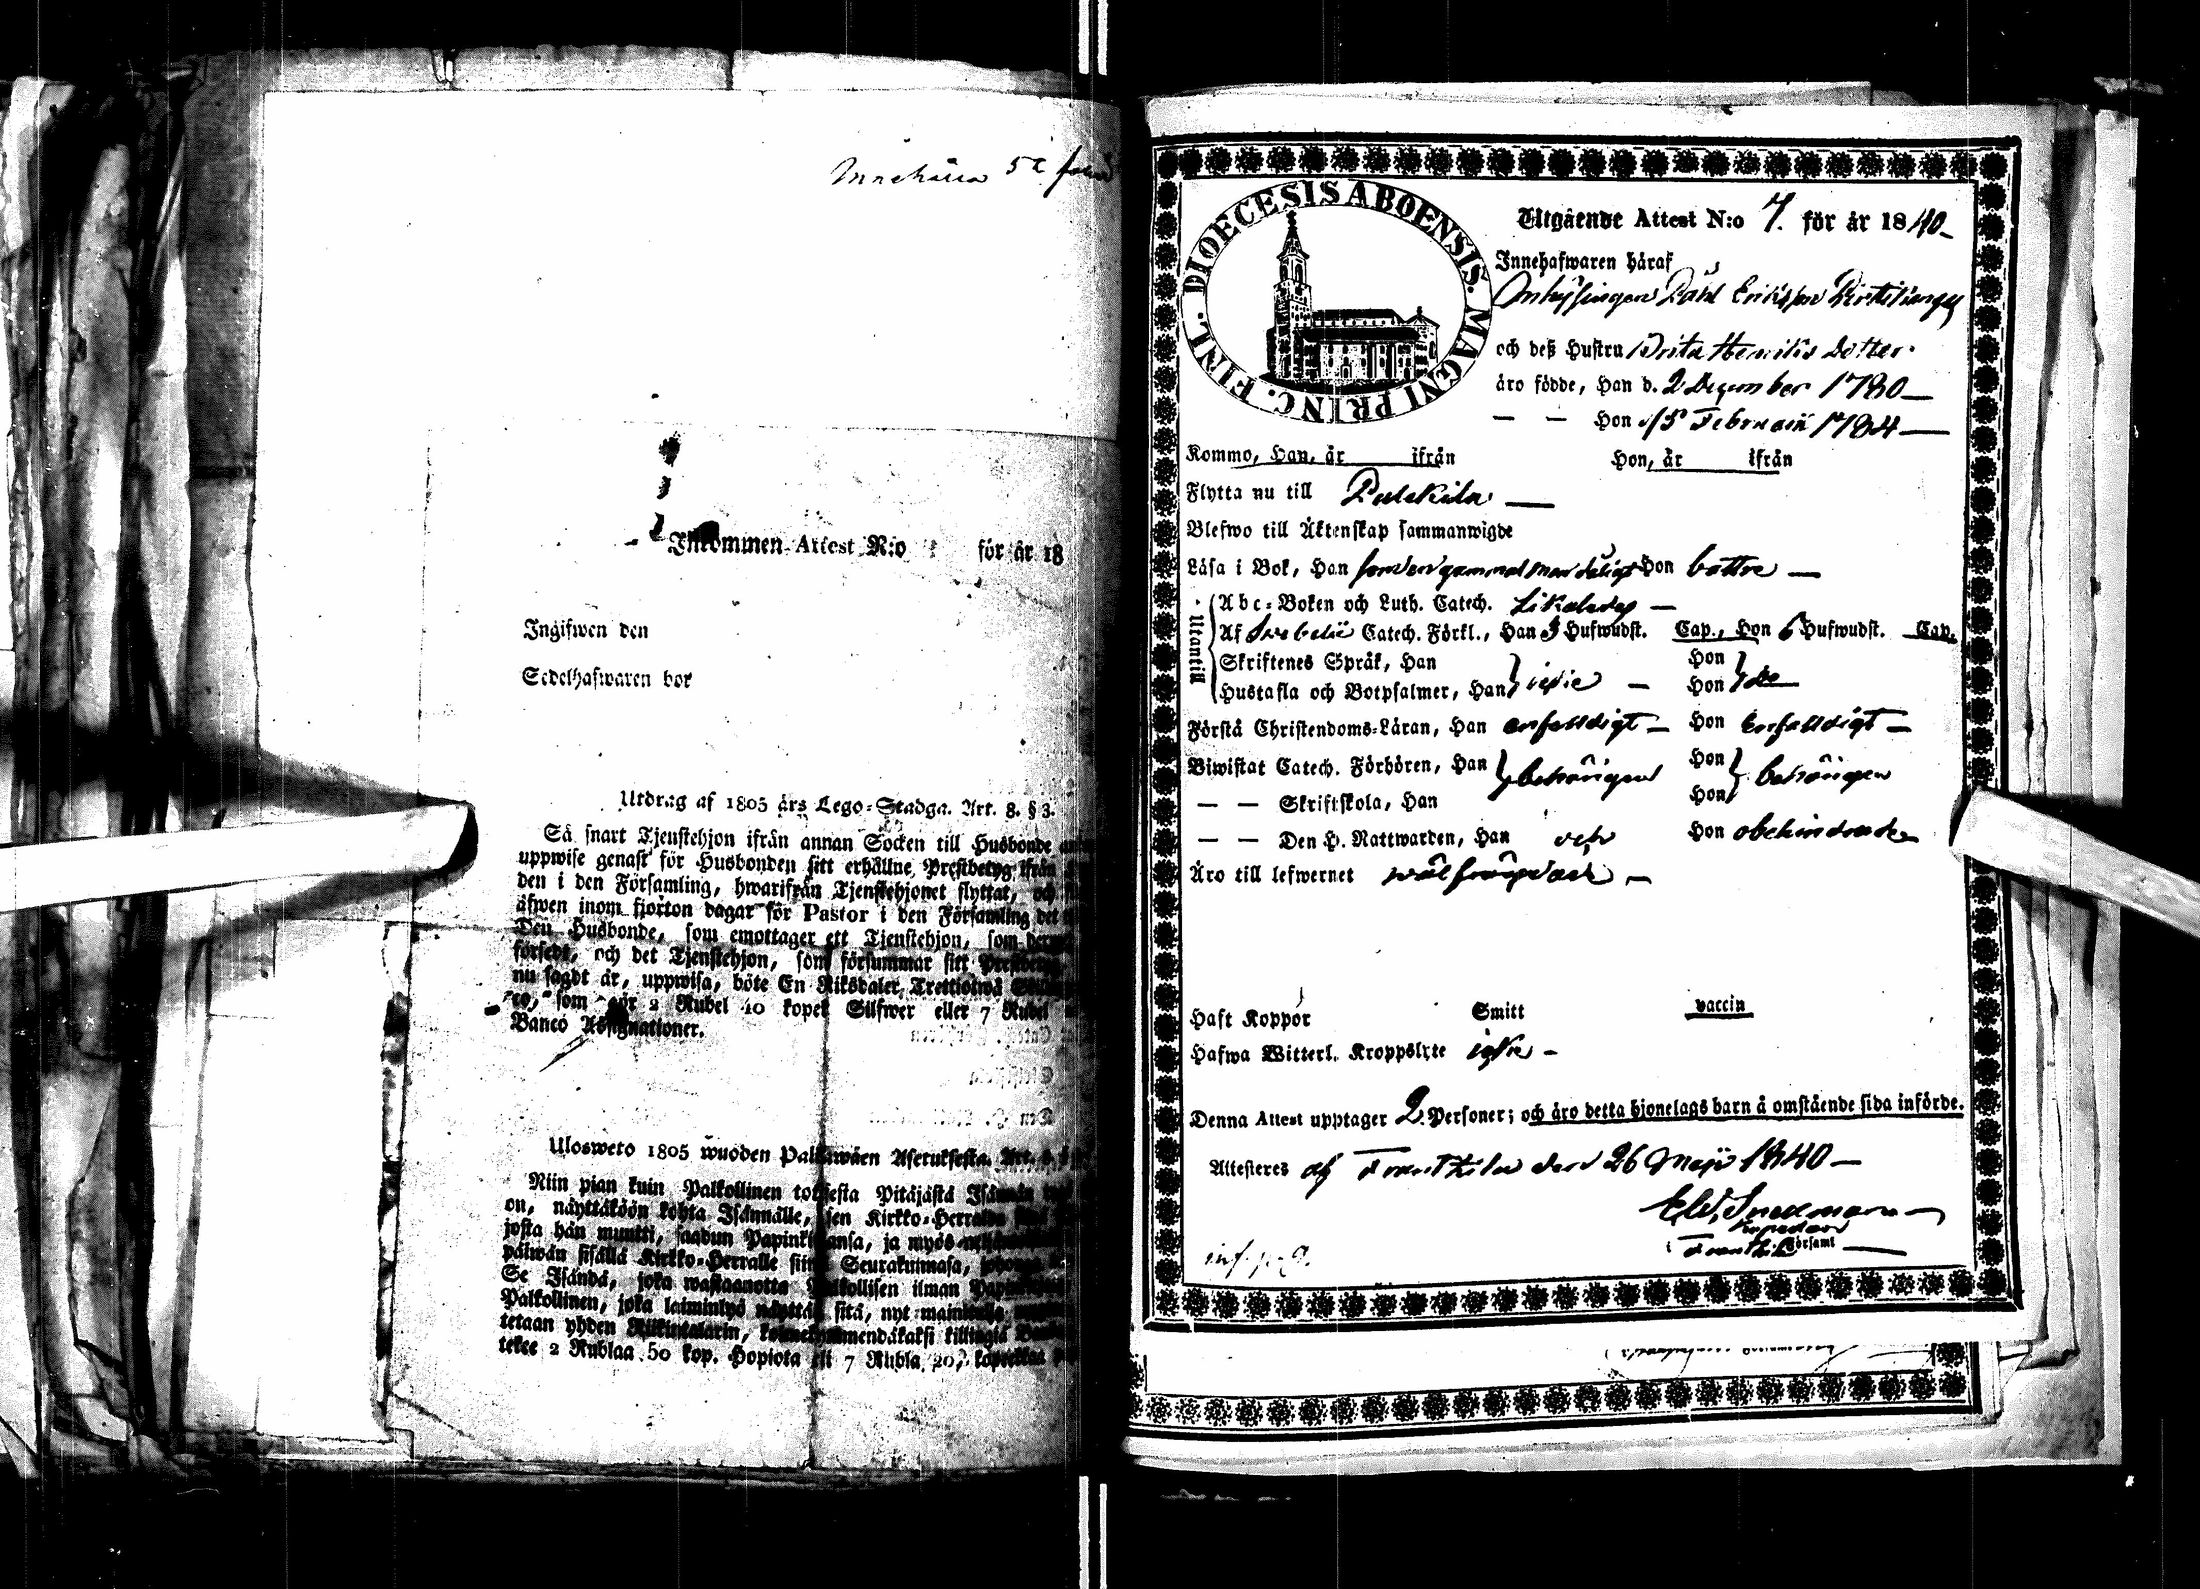 Innehåller 52 
Inkommen Attest N:o för år 18
Ingifwen den
Sedelhafwaren bor
Utdrag af 1805 års Lego-Stadga. Art. 8. § 3.
Så snart Tjenstehjon ifrån annan Socken till Husbonde
uppwise genast för Husbonden sitt erhållne Prestbetyg ifrån
den i den Församling, hwarifrån Tjenstehjonet flyttat, och
äfwen inom fjorton dagar för Pastor i den Församling det
Den Husbonde, som emottager ett Tjenstehjon, som
försedt, och det Tjenstehjon, som försummar sitt Prestbetyg
nu sagdt är, uppwisa, böte En Riksdaler Trettiotwå
co, som gör 2 Rubel 40 kopek Silfwer eller 7 Rubel
Banco Assignationer.
Ulosweto 1805 wuoden Palkawäen Asetuksesta. Art.
Niin pian kuin Palkollinen toisesta Pitäjästä Isännän
on, näyttäköön kohta Isännälle, sen Kirkko-Herralda
josta hän muutti, saadun Papinkirjansa, ja myös
päiwän sisällä Kirkko-Herralle siinä Seurakunnasa,
Se Isändä, joka wastaanottaa Palkollisen ilman
Palkollinen, joka laiminlyö näyttää sitä, nyt mainitulla
tetaan yhden Riikintalarin, kolmekymmendäkaksi killingiä
tekee 2 Rublaa 50 kop. Hopiota eli 7 Rubla 20 kopeekaa
DIOECESIS ABOENSIS. MAGNI PRINC. FINL.
Utgående Attest N:o 7. för år 1840
Innehafwaren häraf
Inhysingen Påhl Eriksson
och deß Hustru Brita Henriks dotter
äro födde, Han d. 2 December 1780
— — Hon d. 15 Februarii 1784
Kommo, Han, år ifrån Hon, år ifrån
Flytta nu till Pulkila
Blefwo till Äktenskap sammanwigde
Läsa i Bok, Han som en gammal man dåligt Hon bättre
Utantill
Abc-Boken och Luth. Catech. Likaledes
Af Svebelii Catech. Förkl., Han 3 Hufwudst. Cap., Hon 6 Hufwudst. Cap.
Skriftenes Språk, Han Hon
Hustafla och Botpsalmer, Han icke Hon do
Förstå Christendoms-Läran, Han enfaldigt Hon Enfaldigt
Biwistat Catech. Förhören, Han behörigen Hon behörigen
— — Skriftskola, Han Hon
— — Den H. Nattwarden, Han och Hon obehindrade
Äro till lefwernet wälfrägdade
Haft Koppor Smitt vaccin
Hafwa Witterl. Kroppslyte icke
Denna Attest upptager 2 Personer; och äro detta hjonelags barn å omstående sida införde.
Attesteras af Frantzila den 26 Maji 1840
Snellman
Kapellan
i Frantzila Församl